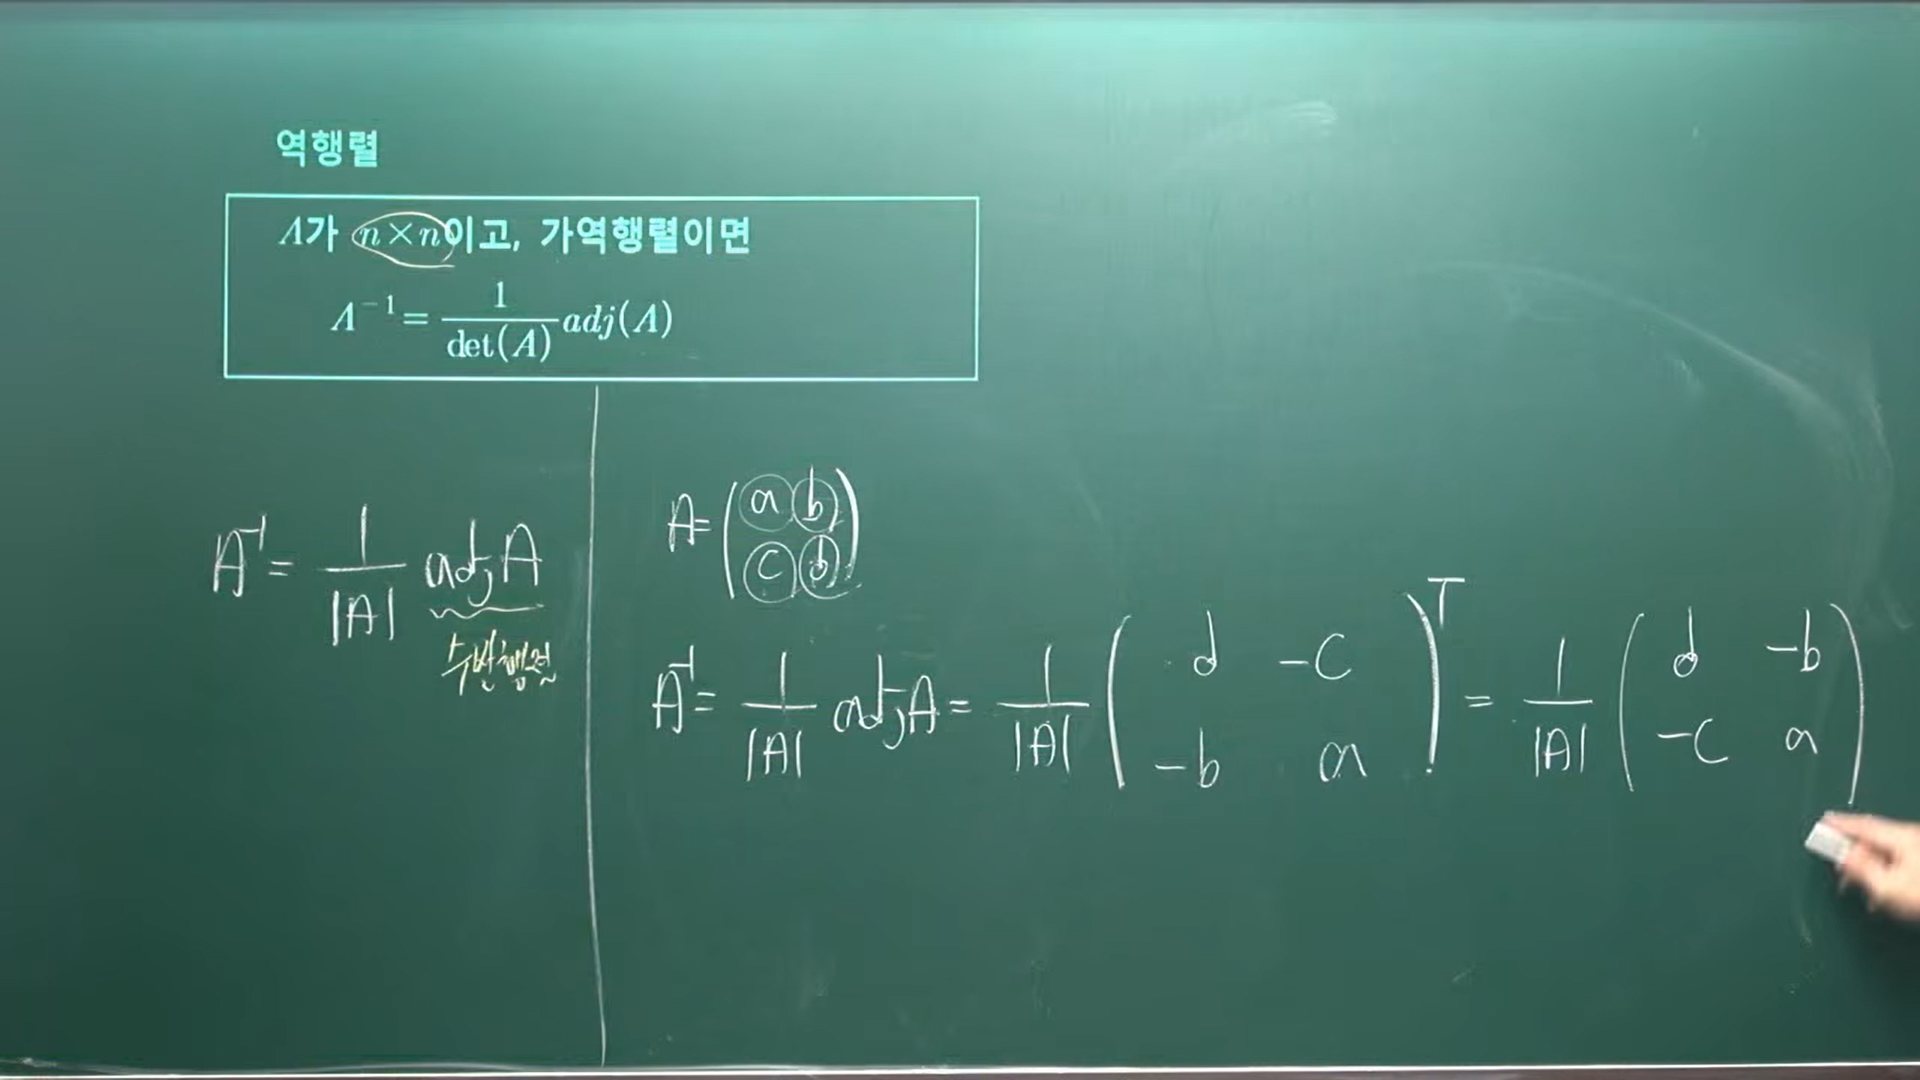 역행렬
A가 n×n이고, 가역행렬이면
A⁻¹ = 1/det(A) adj(A)
A⁻¹ = 1/|A| adjA
수반행렬
A = (a b
c d)
A⁻¹ = 1/|A| adjA = 1/|A| (d -c
-b a)ᵀ = 1/|A| (d -b
-c a)